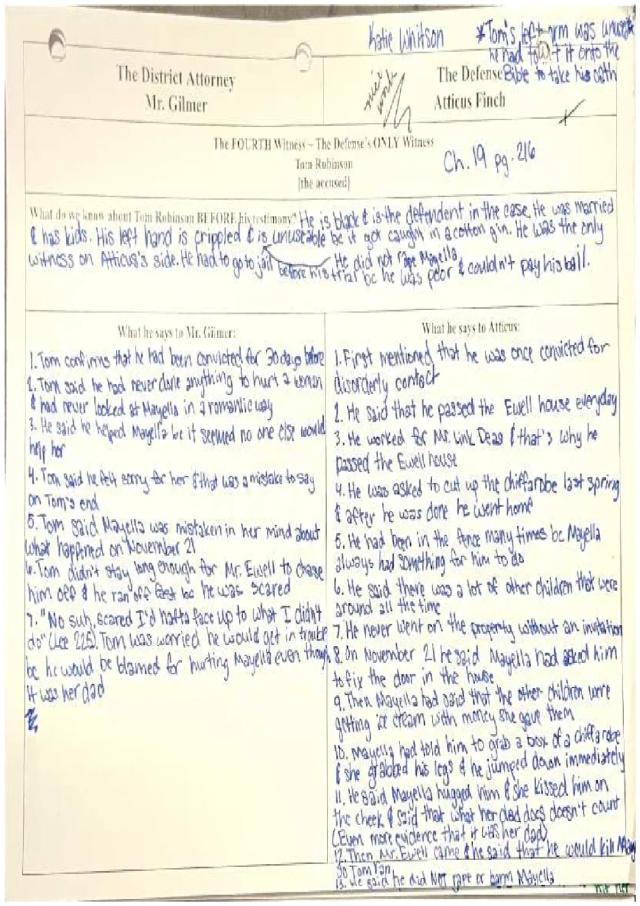 Katie Whitson
*Tom's left arm was unuse
he had to it onto the
Bible to take his oath
The District Attorney
Mr. Gilmer
nice
work
The Defense
Atticus Finch
The FOURTH Witness – The Defense's ONLY Witness
Tom Robinson
[the accused]
Ch. 19 pg. 216
What do we know about Tom Robinson BEFORE his testimony? He is black & is the defendent in the case. He was married
& has kids. His left hand is crippled & is unuseable bc it got caught in a cotton gin. He was the only
witness on Atticus's side. He had to go to jail before his trial bc he was poor & couldn't pay his bail.
He did not rape Mayella
What he says to Mr. Gilmer:
1. Tom confirms that he had been convicted for 30 days before
2. Tom said he had never done anything to hurt a woman
& had never looked at Mayella in a romantic way
3. He said he helped Mayella bc it seemed no one else would
help her
4. Tom said he felt sorry for her & that was a mistake to say
on Tom's end
5. Tom said Mayella was mistaken in her mind about
what happened on November 21
6. Tom didn't stay long enough for Mr. Ewell to chase
him off & he ran off fast bc he was scared
7. "No suh, scared I'd hafta face up to what I didn't
do" (Lee 225). Tom was worried he would get in trouble
bc he would be blamed for hurting Mayella even though
it was her dad
What he says to Atticus:
1. First mentioned that he was once convicted for
disorderly contact
2. He said that he passed the Ewell house everyday
3. He worked for Mr. Link Deas & that's why he
passed the Ewell house
4. He was asked to cut up the chiffarobe last spring
& after he was done he went home
5. He had been in the fence many times bc Mayella
always had something for him to do
6. He said there was a lot of other children that were
around all the time
7. He never went on the property without an invitation
8. On November 21 he said Mayella had asked him
to fix the door in the house
9. Then Mayella had said that the other children were
getting ice cream with money she gave them
10. Mayella had told him to grab a box of a chiffarobe
& she grabbed his legs & he jumped down immediately
11. He said Mayella hugged him & she kissed him on
the cheek & said that what her dad does doesn't count
(Even more evidence that it was her dad)
12. Then Mr. Ewell came & he said that he would kill May
so Tom ran
13. He said he did NOT rape or harm Mayella